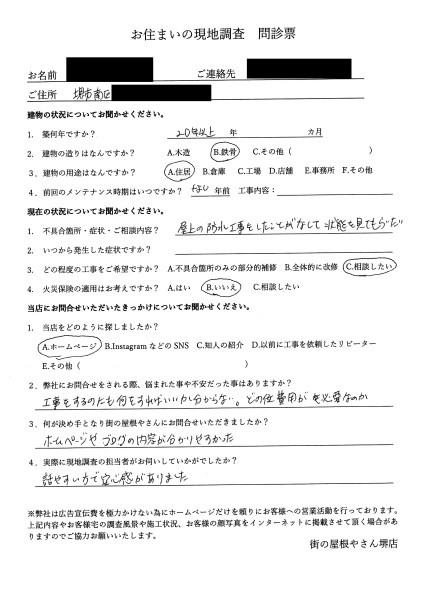 お住まいの現地調査　問診票
お名前　ご連絡先
ご住所　堺市南区
建物の状況についてお聞かせください。
1.　築何年ですか？　20年以上　年　カ月
2.　建物の造りはなんですか？　A.木造　B.鉄骨　C.その他（　）
3.　建物の用途はなんですか？　A.住居　B.倉庫　C.工場　D.店舗　E.事務所　F.その他
4.　前回のメンテナンス時期はいつですか？　なし　年前　工事内容：
現在の状況についてお聞かせください。
1.　不具合箇所・症状・ご相談内容？　屋上の防水工事をしたことがなくて状態を見てもらいたい
2.　いつから発生した症状ですか？
3.　どの程度の工事をご希望ですか？　A.不具合箇所のみの部分的補修　B.全体的に改修　C.相談したい
4.　火災保険の適用はお考えですか？　A.はい　B.いいえ　C.相談したい
当店にお問合せいただいたきっかけについてお聞かせください。
1.　当店をどのように探しましたか？
A.ホームページ　B.Instagram などの SNS　C.知人の紹介　D.以前に工事を依頼したリピーター
E.その他（　）
2．弊社にお問合せをされる際、悩まれた事や不安だった事はありますか？
工事をするのにも何をすればいいか分からない。どの位費用が必要なのか
3．何が決め手となり街の屋根やさんにお問合せいただきましたか？
ホームページやブログの内容が分かりやすかった
4．実際に現地調査の担当者がお伺いしていかがでしたか？
話やすい方で安心感がありました
※弊社は広告宣伝費を極力かけない為にホームページだけを頼りにお客様への営業活動を行っております。
上記内容やお客様宅の調査風景や施工状況、お客様の顔写真をインターネットに掲載させて頂く場合があ
りますのでご協力お願いいたします。
街の屋根やさん堺店